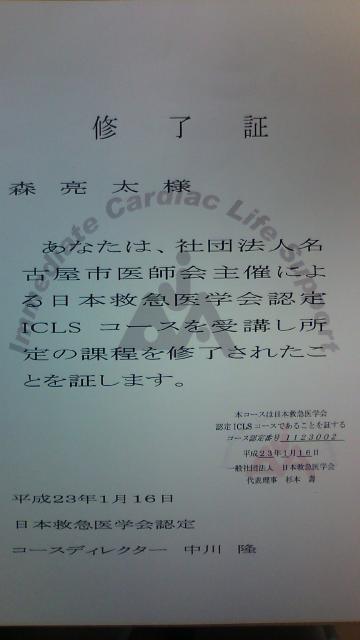 修了証
森亮太様
Immediate Cardiac Life Support
あなたは、社団法人名
古屋市医師会主催によ
る日本救急医学会認定
ICLS コースを受講し所
定の課程を修了されたこ
とを証します。
本コースは日本救急医学会
認定ICLSコースであることを証する
コース認定番号 1123002
平成23年1月16日
一般社団法人 日本救急医学会
代表理事 杉本 壽
平成23年1月16日
日本救急医学会認定
コースディレクター 中川 隆